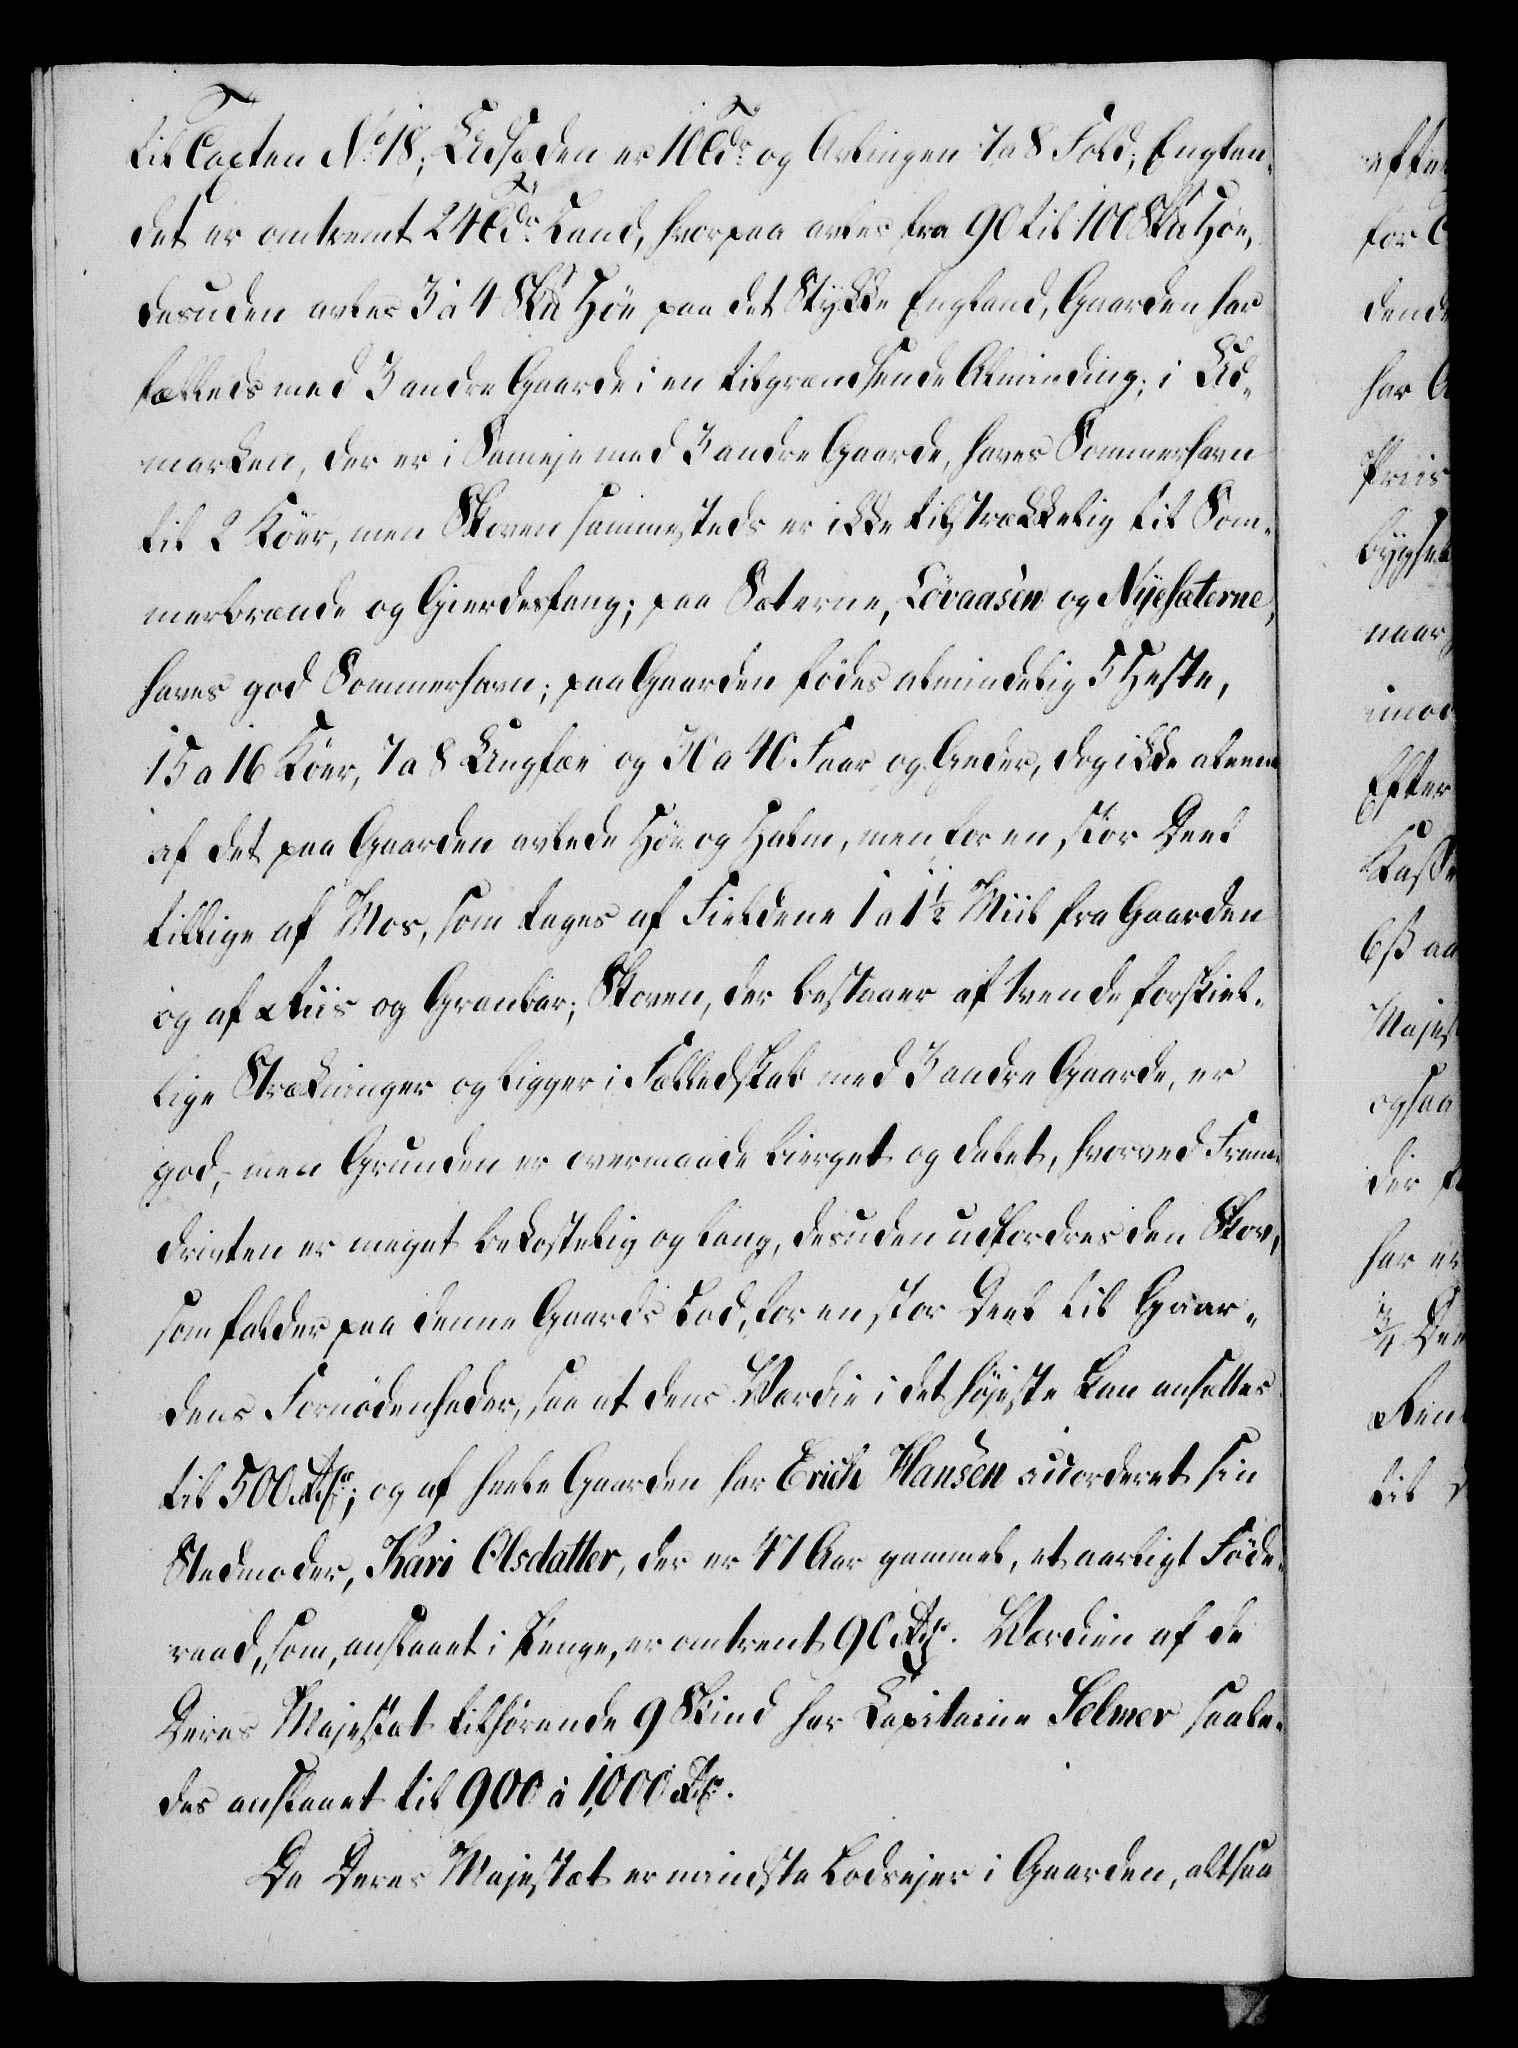 til Taxten No 18; Udsæden er 10 Tdr og Avlingen 7 a 8 Fold; Englan-
det er omtrent 24 Tdr Land, hvorpaa avles fra 90 til 100 Skd Höe,
desuden avles 3 á 4 Skd Höe paa det Stykke England, Gaarden har
fælleds med 3 andre Gaarde i en tilgrændsende Alminding; i Ud-
marken, der er i Sameje med 3 andre Gaarde, haves Sommerhavn
til 2 Köer, men Skoven sammesteds er ikke tilstrækkelig til Som-
merbrænde og Gierdesfang; paa Sæterne, Lövaasen og Nÿesæterne,
haves god Sommerhavn; paa Gaarden födes almindelig 5 Heste,
15 a 16 Köer, 7 a 8 Ungfæe og 30 a 40 Faar og Geder, dog ikke alene
af det paa Gaarden avlede Höe og Halm, men for en stor Deel
tillige af Mos, som tages af Fieldene 1 a 1½ Miil fra Gaarden
og af Riis og Granbar; Skoven, der bestaaer af tvende forskiel-
lige Strækninger og ligger i Fælledskab med 3 andre Gaarde, er
god, men Grunden er overmaade bierget og dalet, hvorved Frem-
drivten er meget bekostelig og lang, desuden udfordres den Skov,
som falder paa denne Gaards Lod, for en stor Deel til Gaar-
dens Fornödenheder, saa at dens Værdie i det höjeste kan ansættes
til 500 Rdr; og af heele Gaarden har Erich Hansen accorderet sin
Stedmoder, Kari Olsdatter, der er 47 Aar gammel, et aarligt Föde-
raad, som, anslaaet i Penge, er omtrent 90 Rdr. Værdien af de
Deres Majestæt tilhörende 9 Skind har Capitaine Selmer saale-
des anslaaet til 900 à 1,000 Rdr.
Da Deres Majestæt er mindste Lodsejer i Gaarden, altsaa